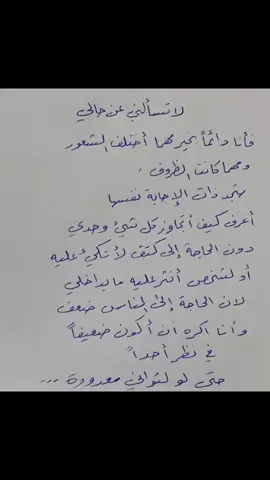 لا تسألني عن حالي
فأنا دائماً بخير مهما أختلف الشعور
ومهما كانت الظروف .
ستجد ذات الإجابة نفسها
أعرف كيف أتجاوز كل شيء وحدي
دون الحاجة إلى كتف لأتكئ عليه
أو لشخص أنثر عليه ما بداخلي
لان الحاجة إلى الناس ضعف
وأنا اكره ان أكون ضعيفاً
في نظر أحداً
حتى لو لثواني معدودة ...